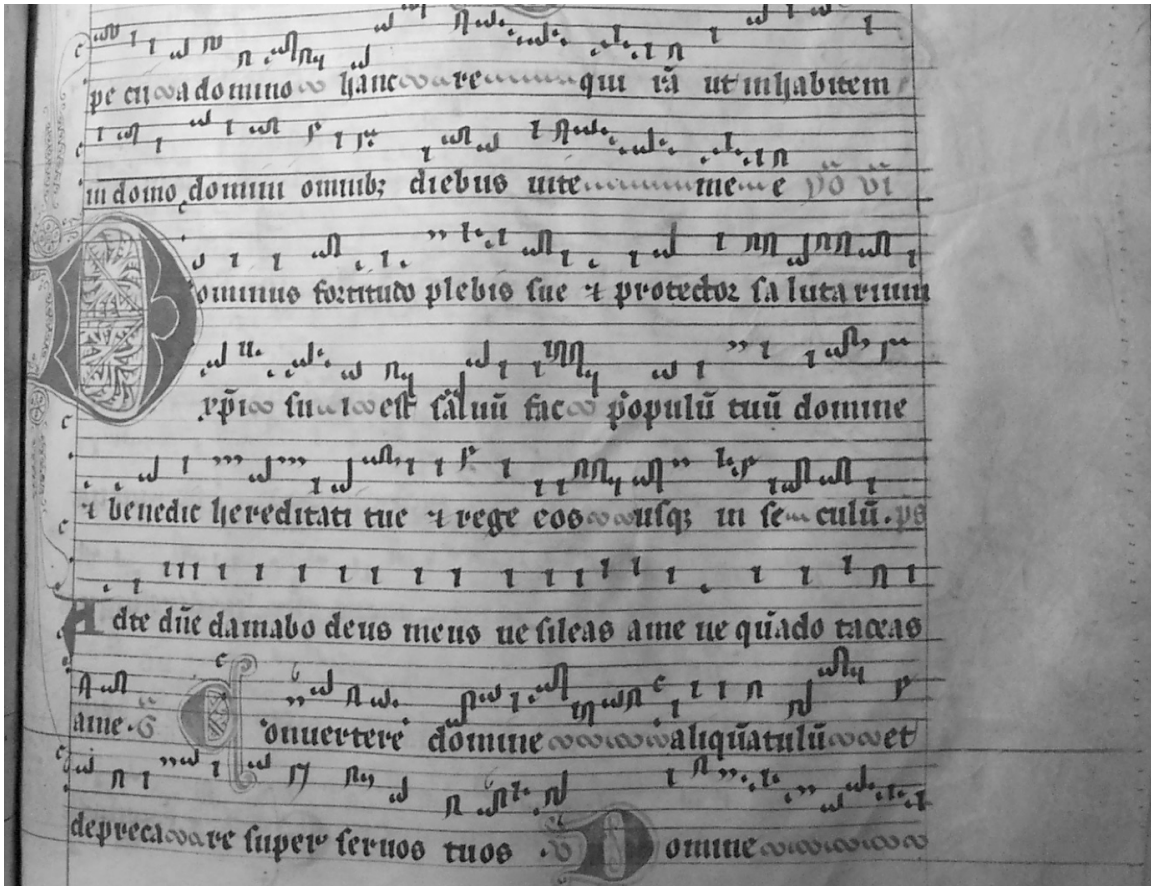 pe cii a domino hanc re qui rā ut inhabitem
in domo domini omnib; diebus uite me e
Dominus fortitudo plebis sue ⁊ protector sa luta rium
xp̄i su i est saluū fac populū tuū domine
⁊ benedic hereditati tue ⁊ rege eos usq; in se culū. ps
Ad te dn̄e clamabo deus meus ne sileas a me ne quādo taceas
a me. G̃ Conuertere domine aliquātulū et
depreca re super seruos tuos . v̄ Domine